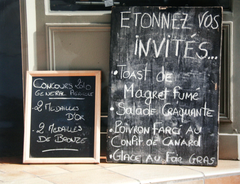 CONCOURS 2010
GENERAL AGRICOLE
2 MEDAILLES
D'OR
2 MEDAILLES
DE BRONZE
ETONNEZ VOS
INVITÉS...
• TOAST DE
MAGRET FUMÉ
• SALADE CRAQUANTE
• POIVRON FARCI AU
CONFIT DE CANARD
• GLACE AU FOIE GRAS